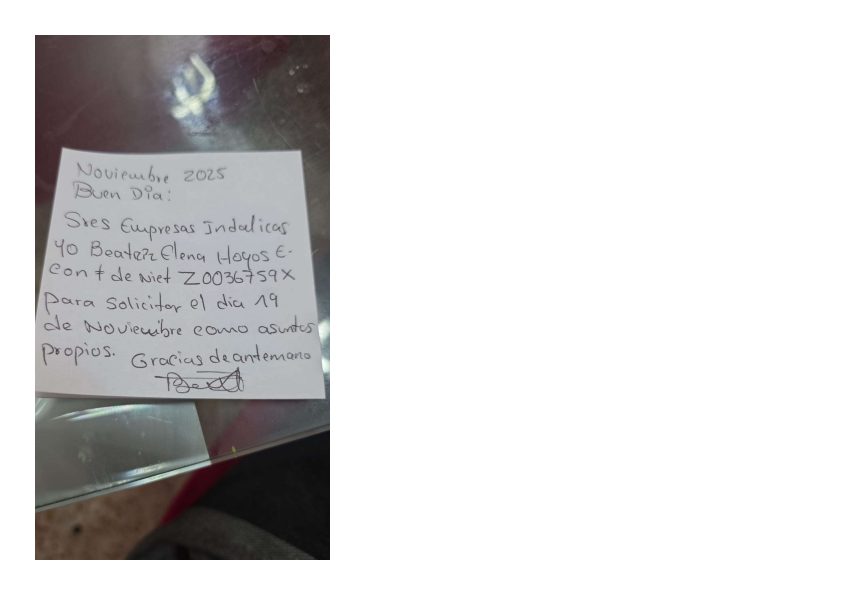 Noviembre 2025
Buen Día:
Sres Empresas Indalicas
Yo Beatriz Elena Hoyos E.
con # de Niet Z0036759X
para solicitar el dia 19
de Noviembre como asuntos
propios. Gracias de antemano